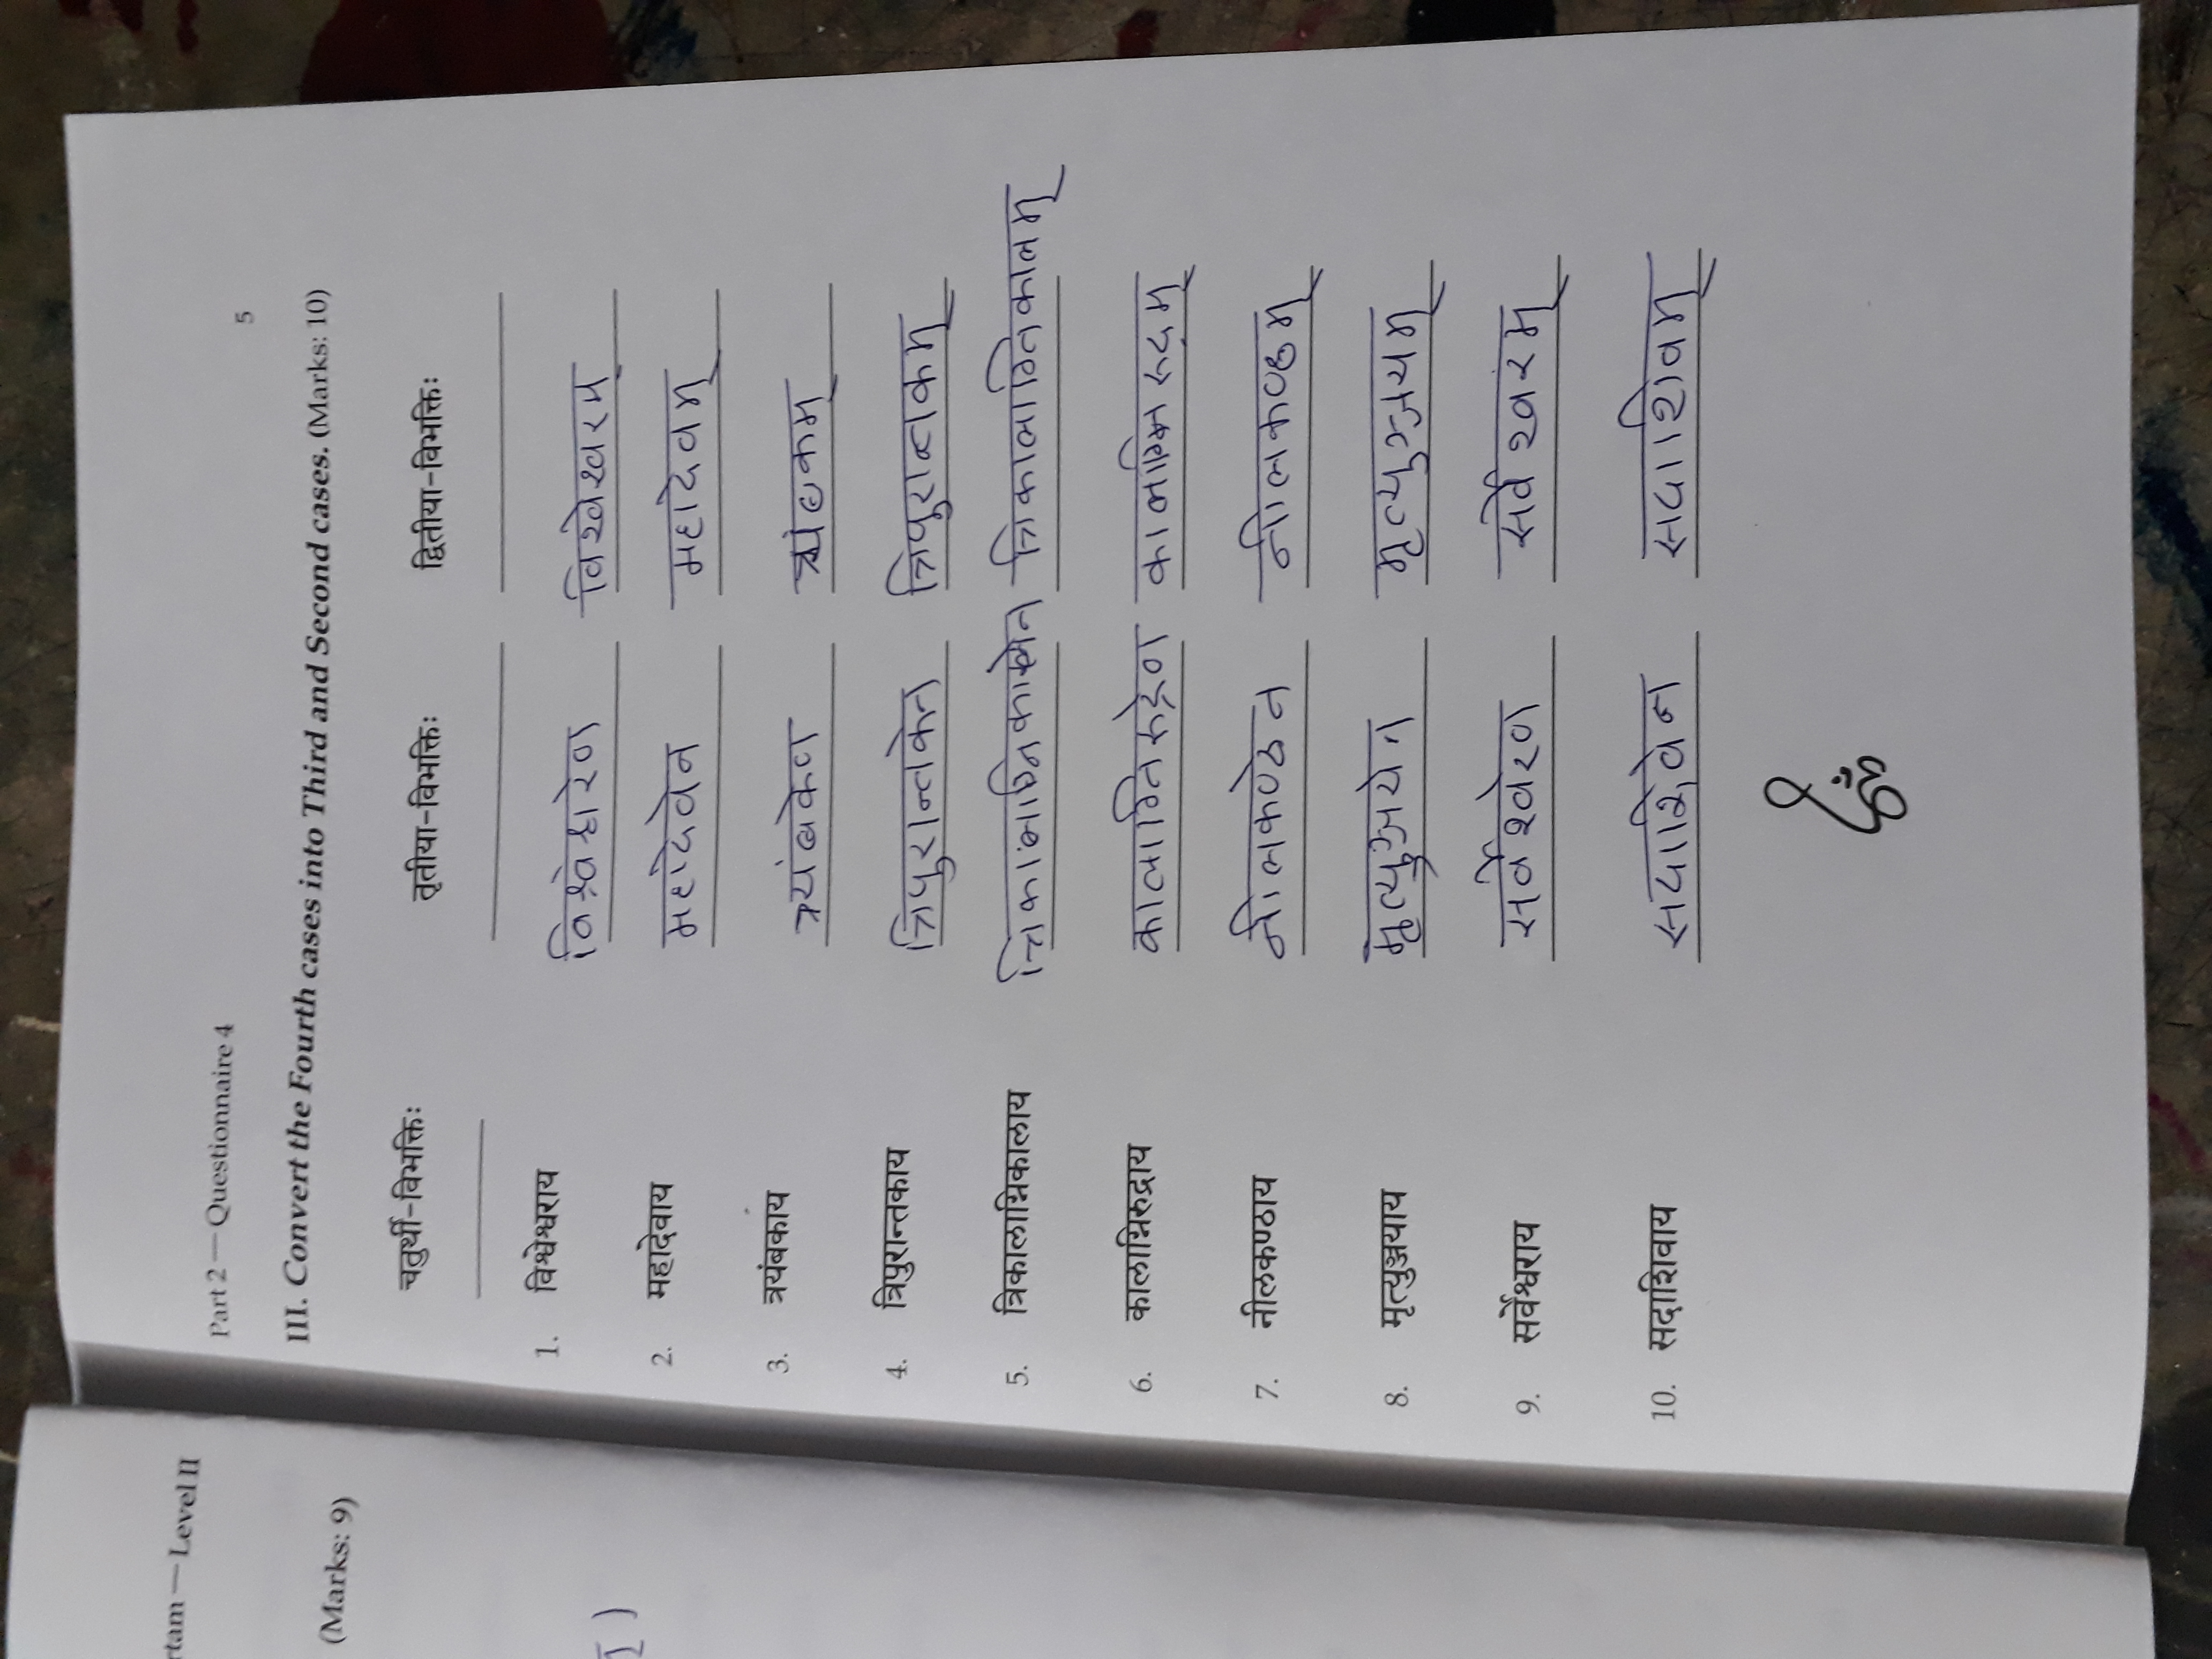 rtam — Level II
(Marks: 9)
Part 2 — Questionnaire 4
5
III. Convert the Fourth cases into Third and Second cases. (Marks: 10)
चतुर्थी-विभक्तिः तृतीया-विभक्तिः द्वितीया-विभक्तिः
1. विश्वेश्वराय विश्वेश्वरेण विश्वेश्वरम्
2. महादेवाय महादेवेन महादेवम्
3. त्रयंबकाय त्र्यंबकेण त्र्यंबकम्
4. त्रिपुरान्तकाय त्रिपुरान्तकेन त्रिपुरान्तकम्
5. त्रिकालाग्निकालाय त्रिकालाग्निकालेन त्रिकालाग्निकालम्
6. कालाग्निरुद्राय कालाग्निरुद्रेण कालाग्निरुद्रम्
7. नीलकण्ठाय नीलकण्ठेन नीलकण्ठम्
8. मृत्युञ्जयाय मृत्युञ्जयेन मृत्युञ्जयम्
9. सर्वेश्वराय सर्वेश्वरेण सर्वेश्वरम्
10. सदाशिवाय सदाशिवेन सदाशिवम्
ॐ